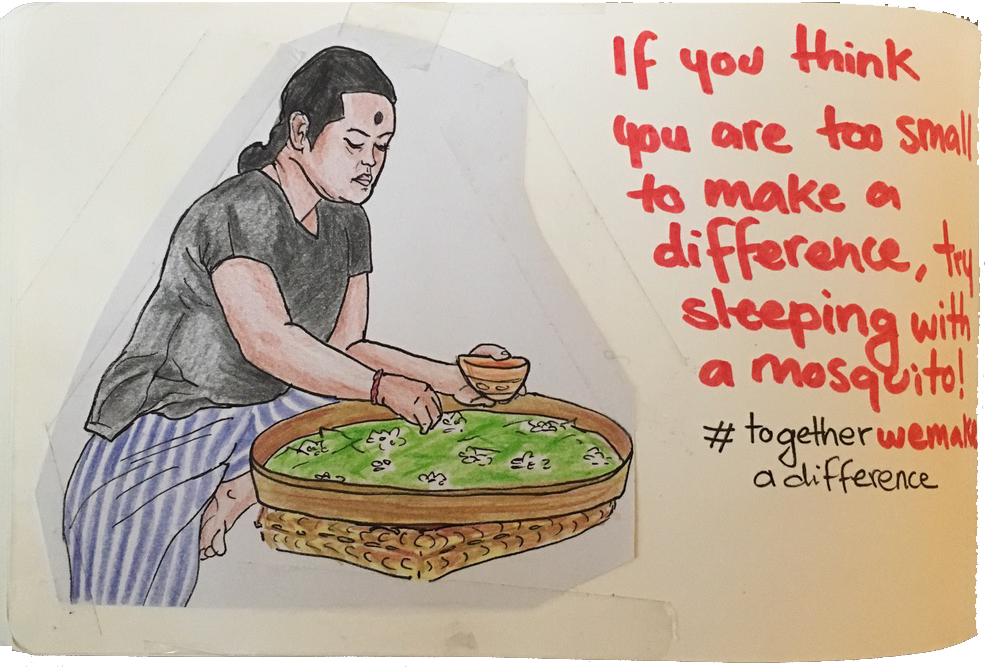 If you think
you are too small
to make a
difference, try
sleeping with
a mosquito!
# together wemake
a difference